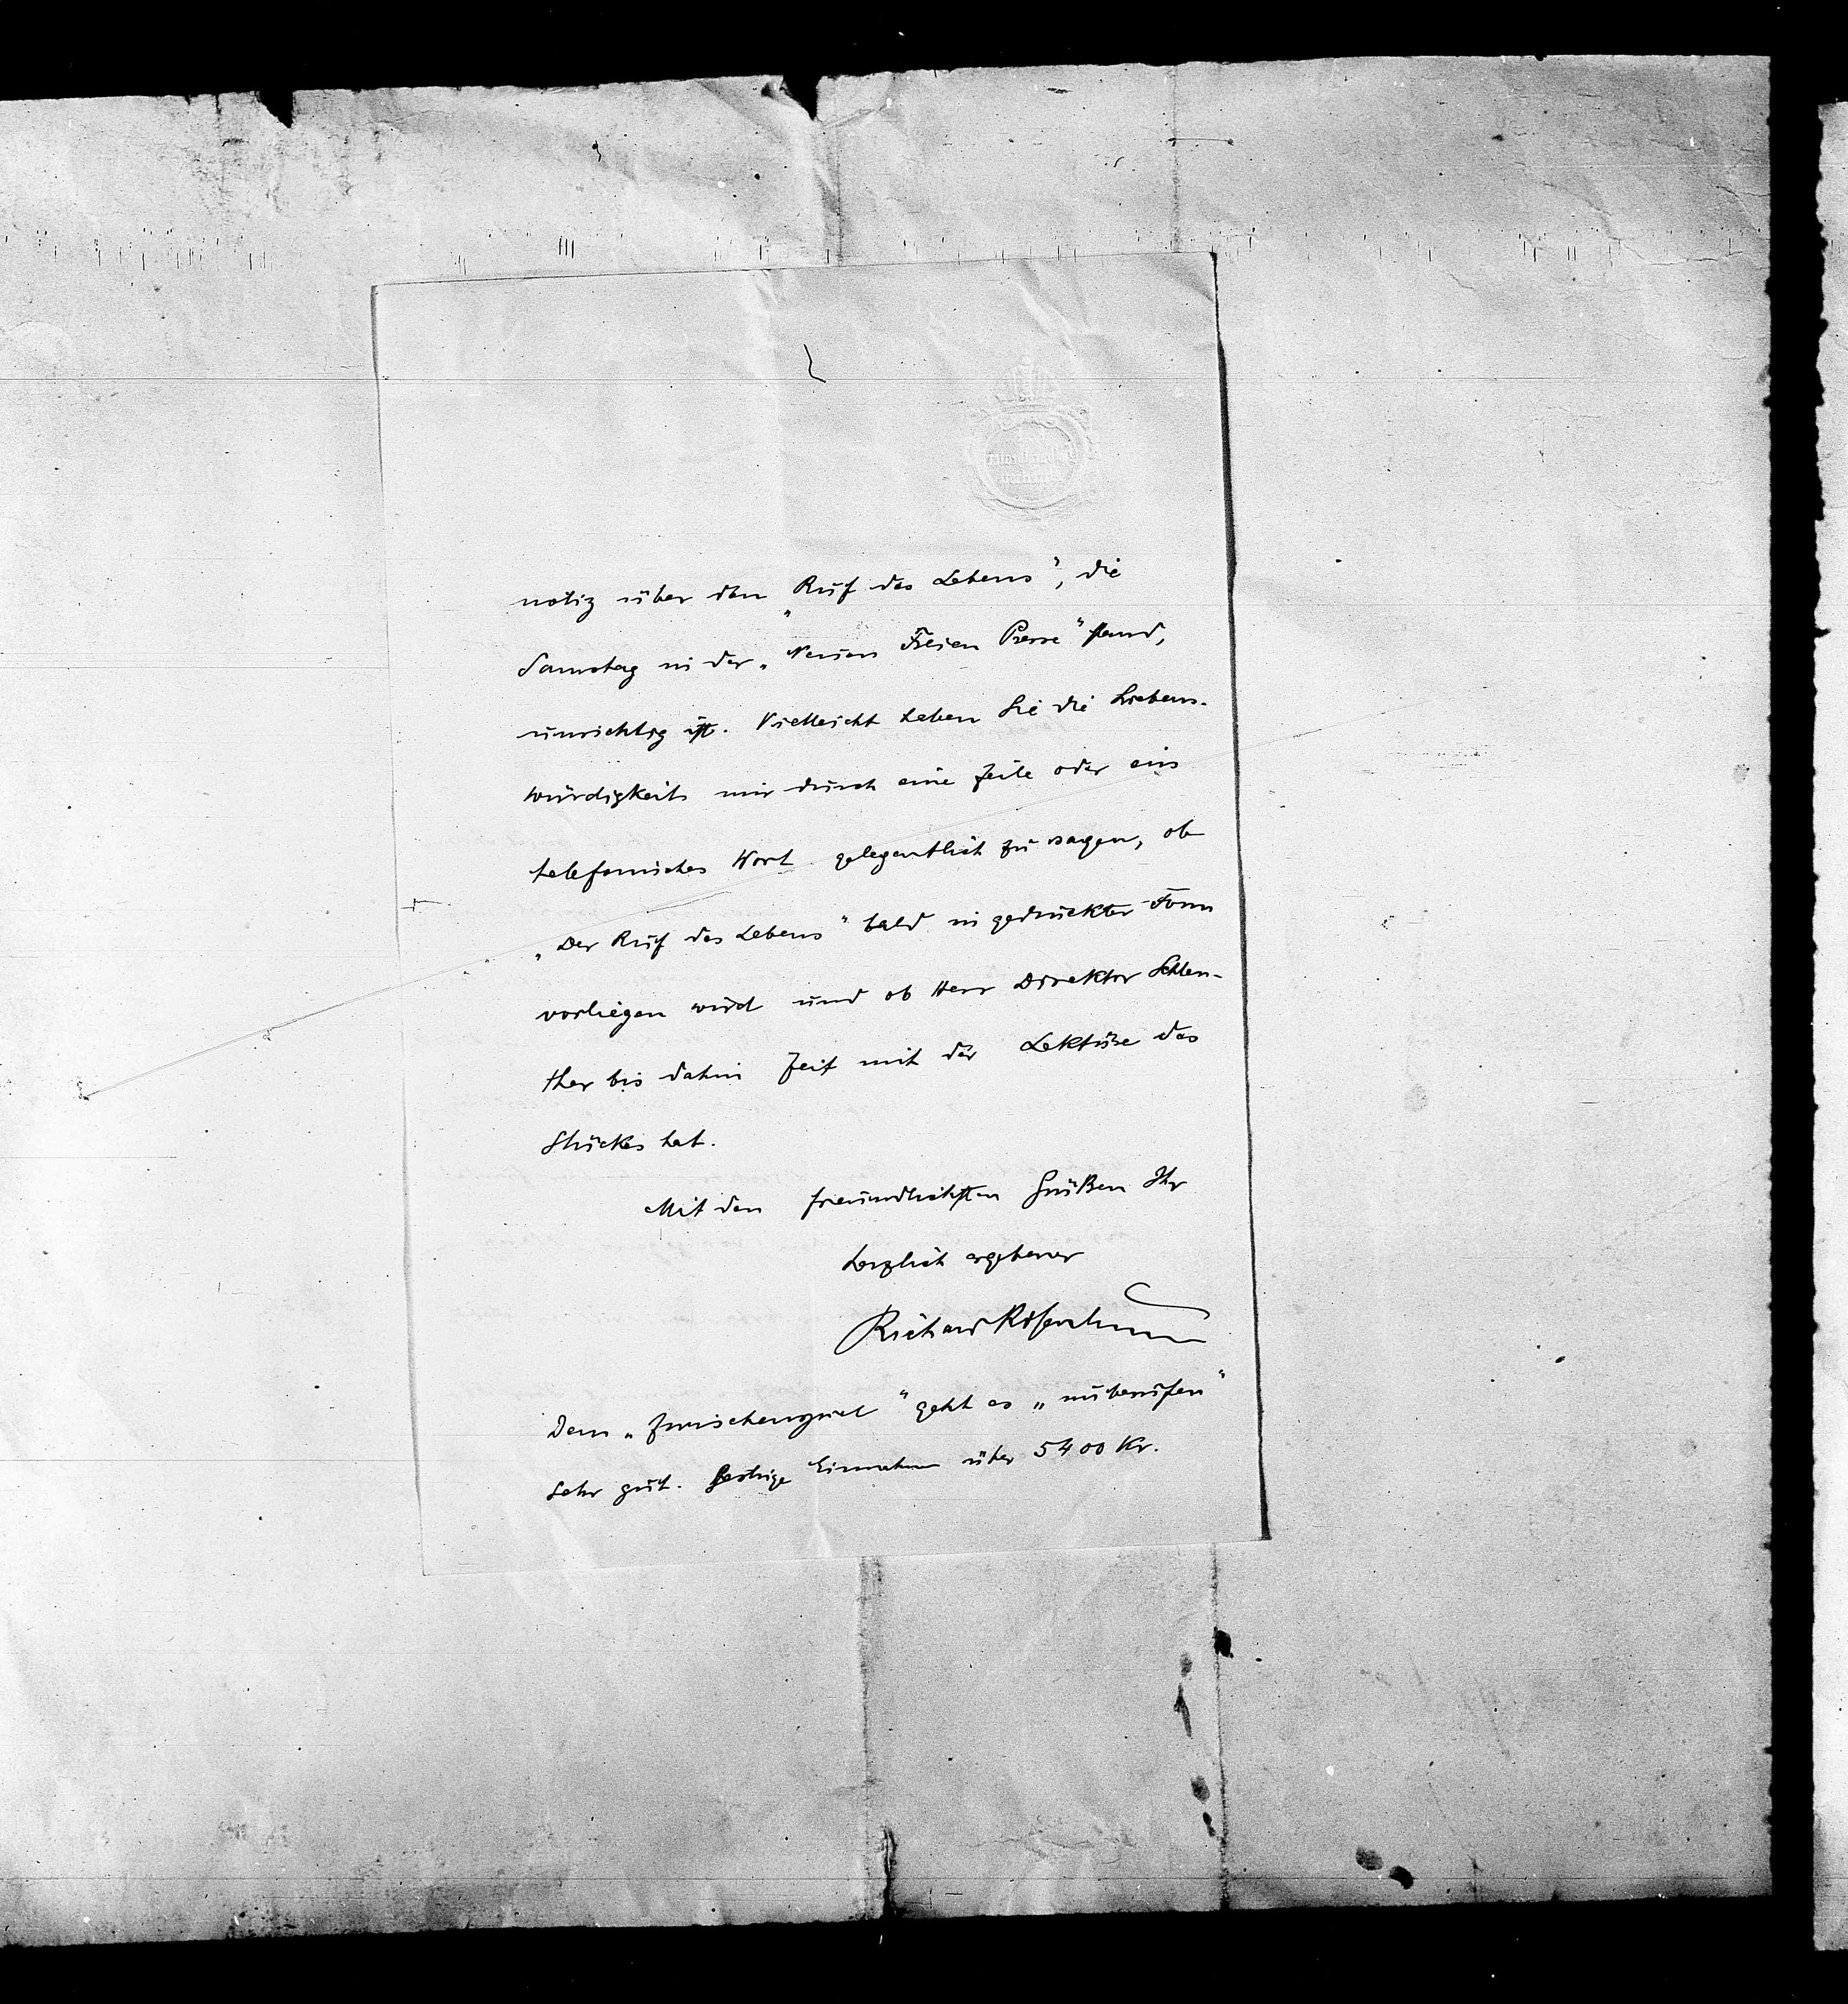 notiz über den „Ruf des Lebens", die
Samstag in der „Neuen Freien Presse" stand,
unrichtig ist. Vielleicht haben Sie die Liebens-
würdigkeit mir durch eine Zeile oder ein
telefonisches Wort gelegentlich zu sagen, ob
„Der Ruf des Lebens" bald in gedruckter Form
vorliegen wird und ob Herr Direktor Schlen-
ther bis dahin Zeit mit der Lektüre des
Stückes hat.
Mit den freundlichsten Grüßen Ihr
herzlich ergebener
Richard Rosenbaum
Dem „Zwischenspiel" geht es „unberufen"
sehr gut. Gestrige Einnahme über 5400 Kr.